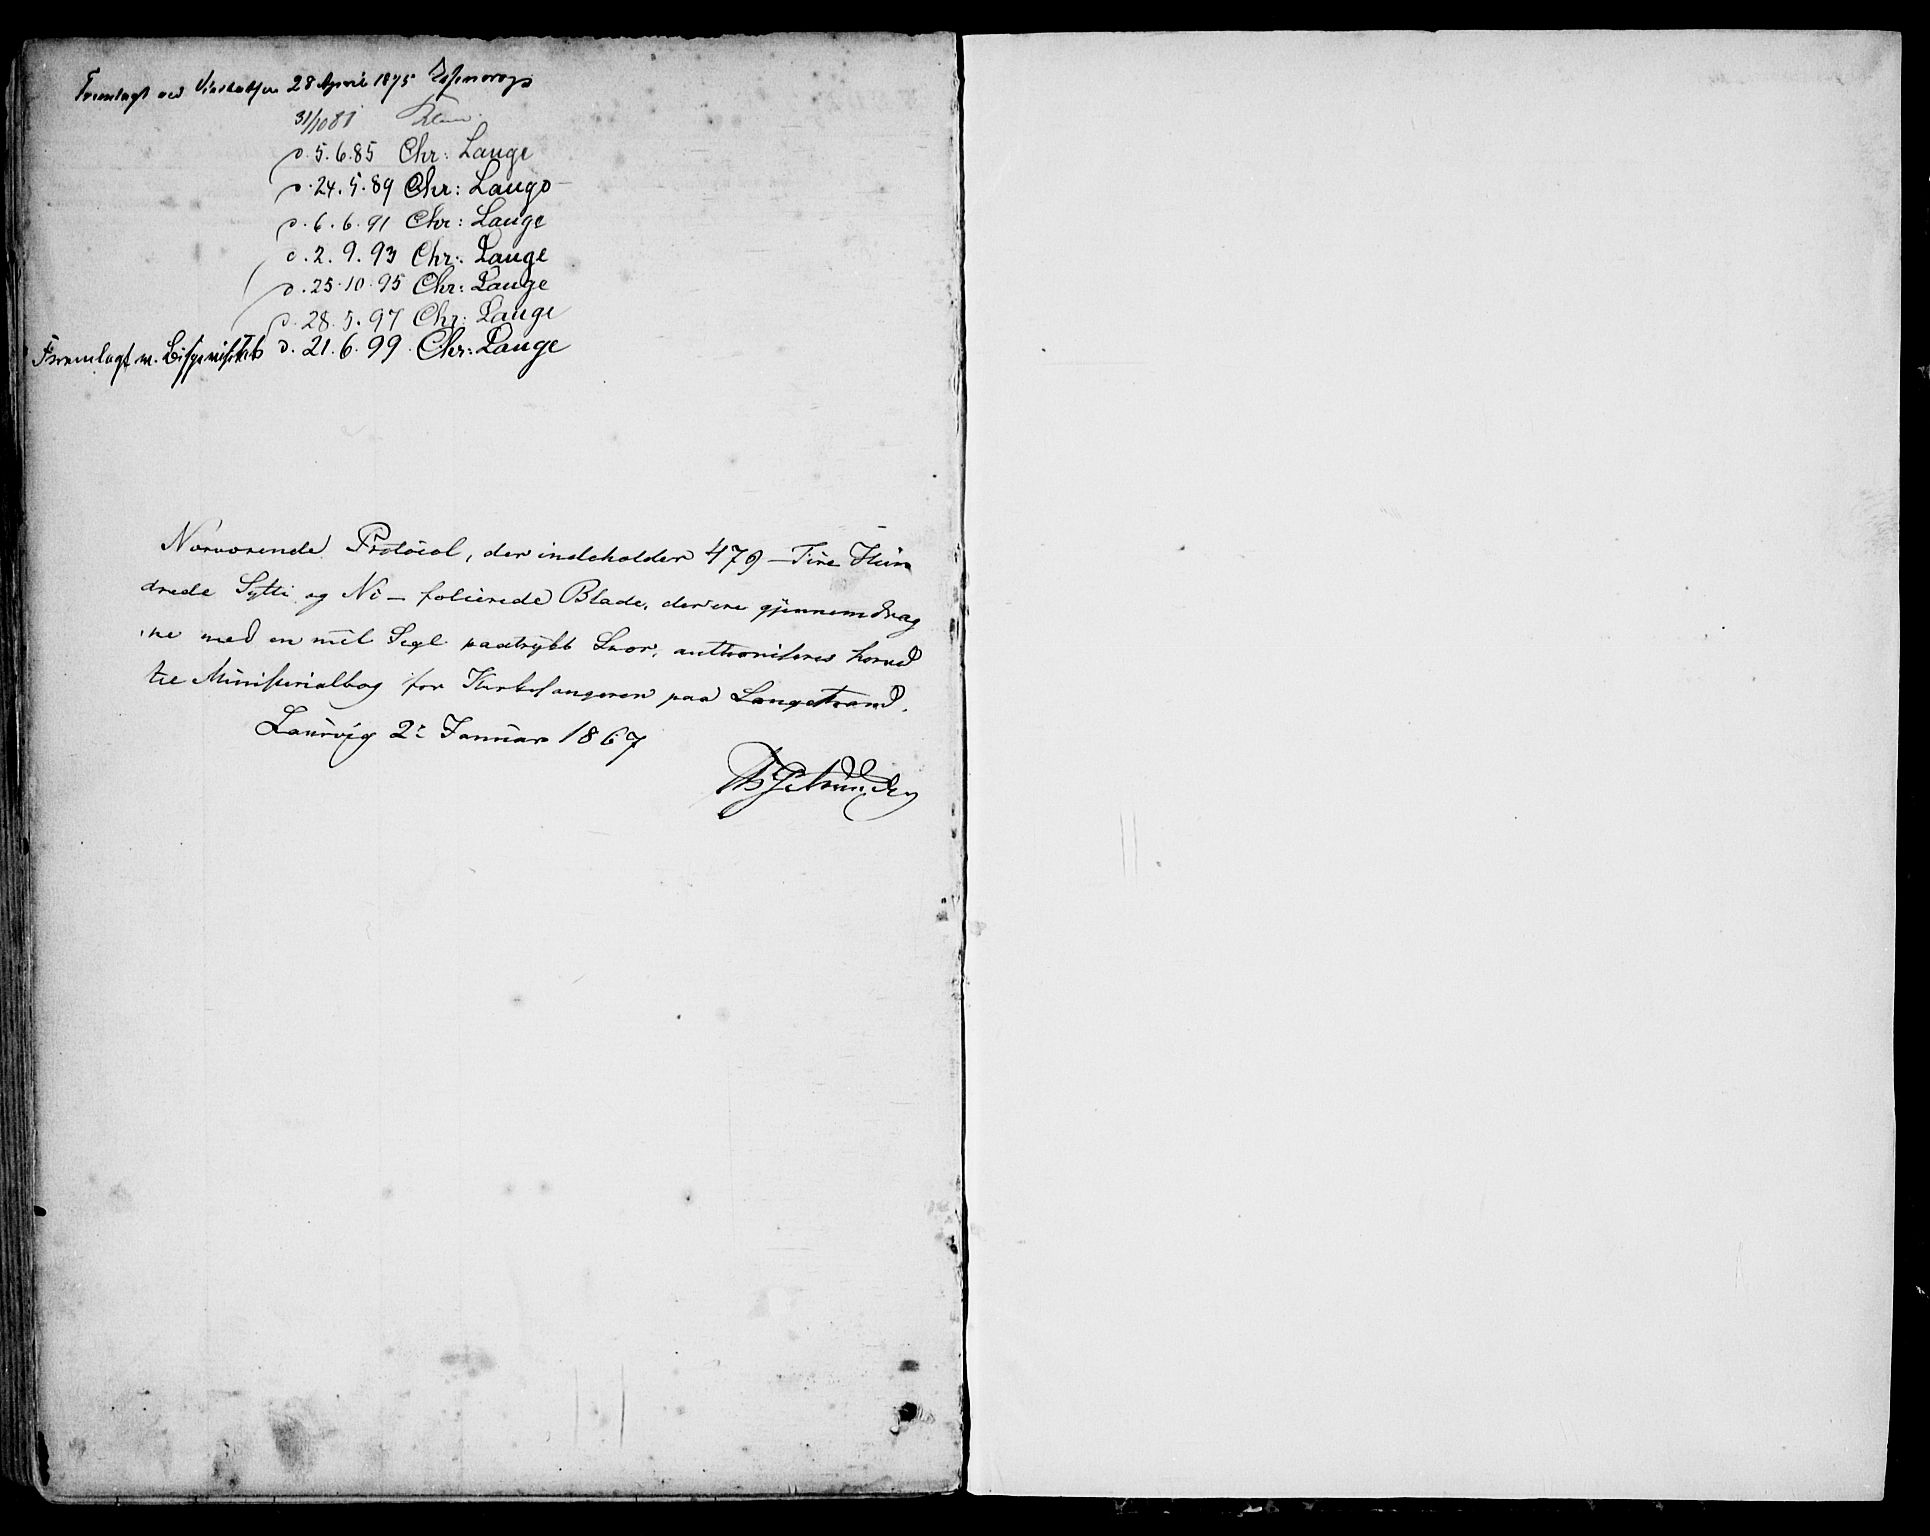 Fremlagt ved Visitatsen 28 April 1875
31/10 81
d. 5. 6. 85 Chr: Lange
d. 24. 5. 89 Chr: Lange
d. 6. 6. 91 Chr: Lange
d. 2. 9. 93 Chr: Lange
d. 25. 10. 95 Chr: Lange
d. 28. 5. 97 Chr: Lange
Fremlagt v. Bispevisitats d. 21. 6. 99. Chr: Lange
Nærværende Protocol, der indeholder 479 – Fire Hun
drede Sytti og Ni – folierede Blade, der ere gjennemdrag
ne med en mit Segl paatrykt Snor, authoriseres herved
til Ministerialbog for Kirkesangeren paa Langestrand.
Laurvig 2: Januar 1867